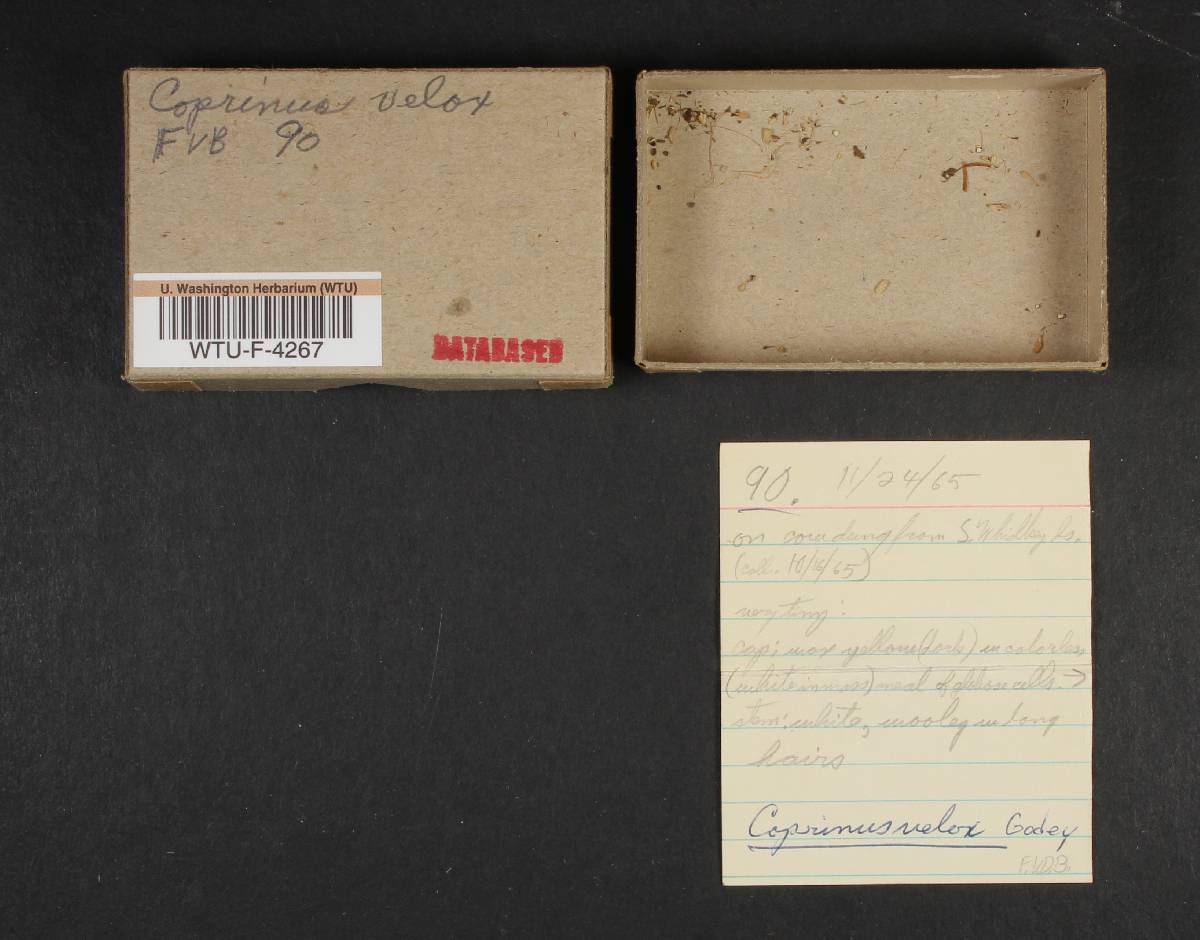 Coprinus velox
FVB 90
U. Washington Herbarium (WTU)
WTU-F-4267
DATABASED
90. 11/24/65
on cow dung from S. Whidbey Is.
(coll. 10/16/65)
very tiny:
cap: wax yellow (dark) w colorless
(white in mass) meal of globose cells →
stem: white, wooley w long
hairs
Coprinus velox Godey
F.V.D.B.